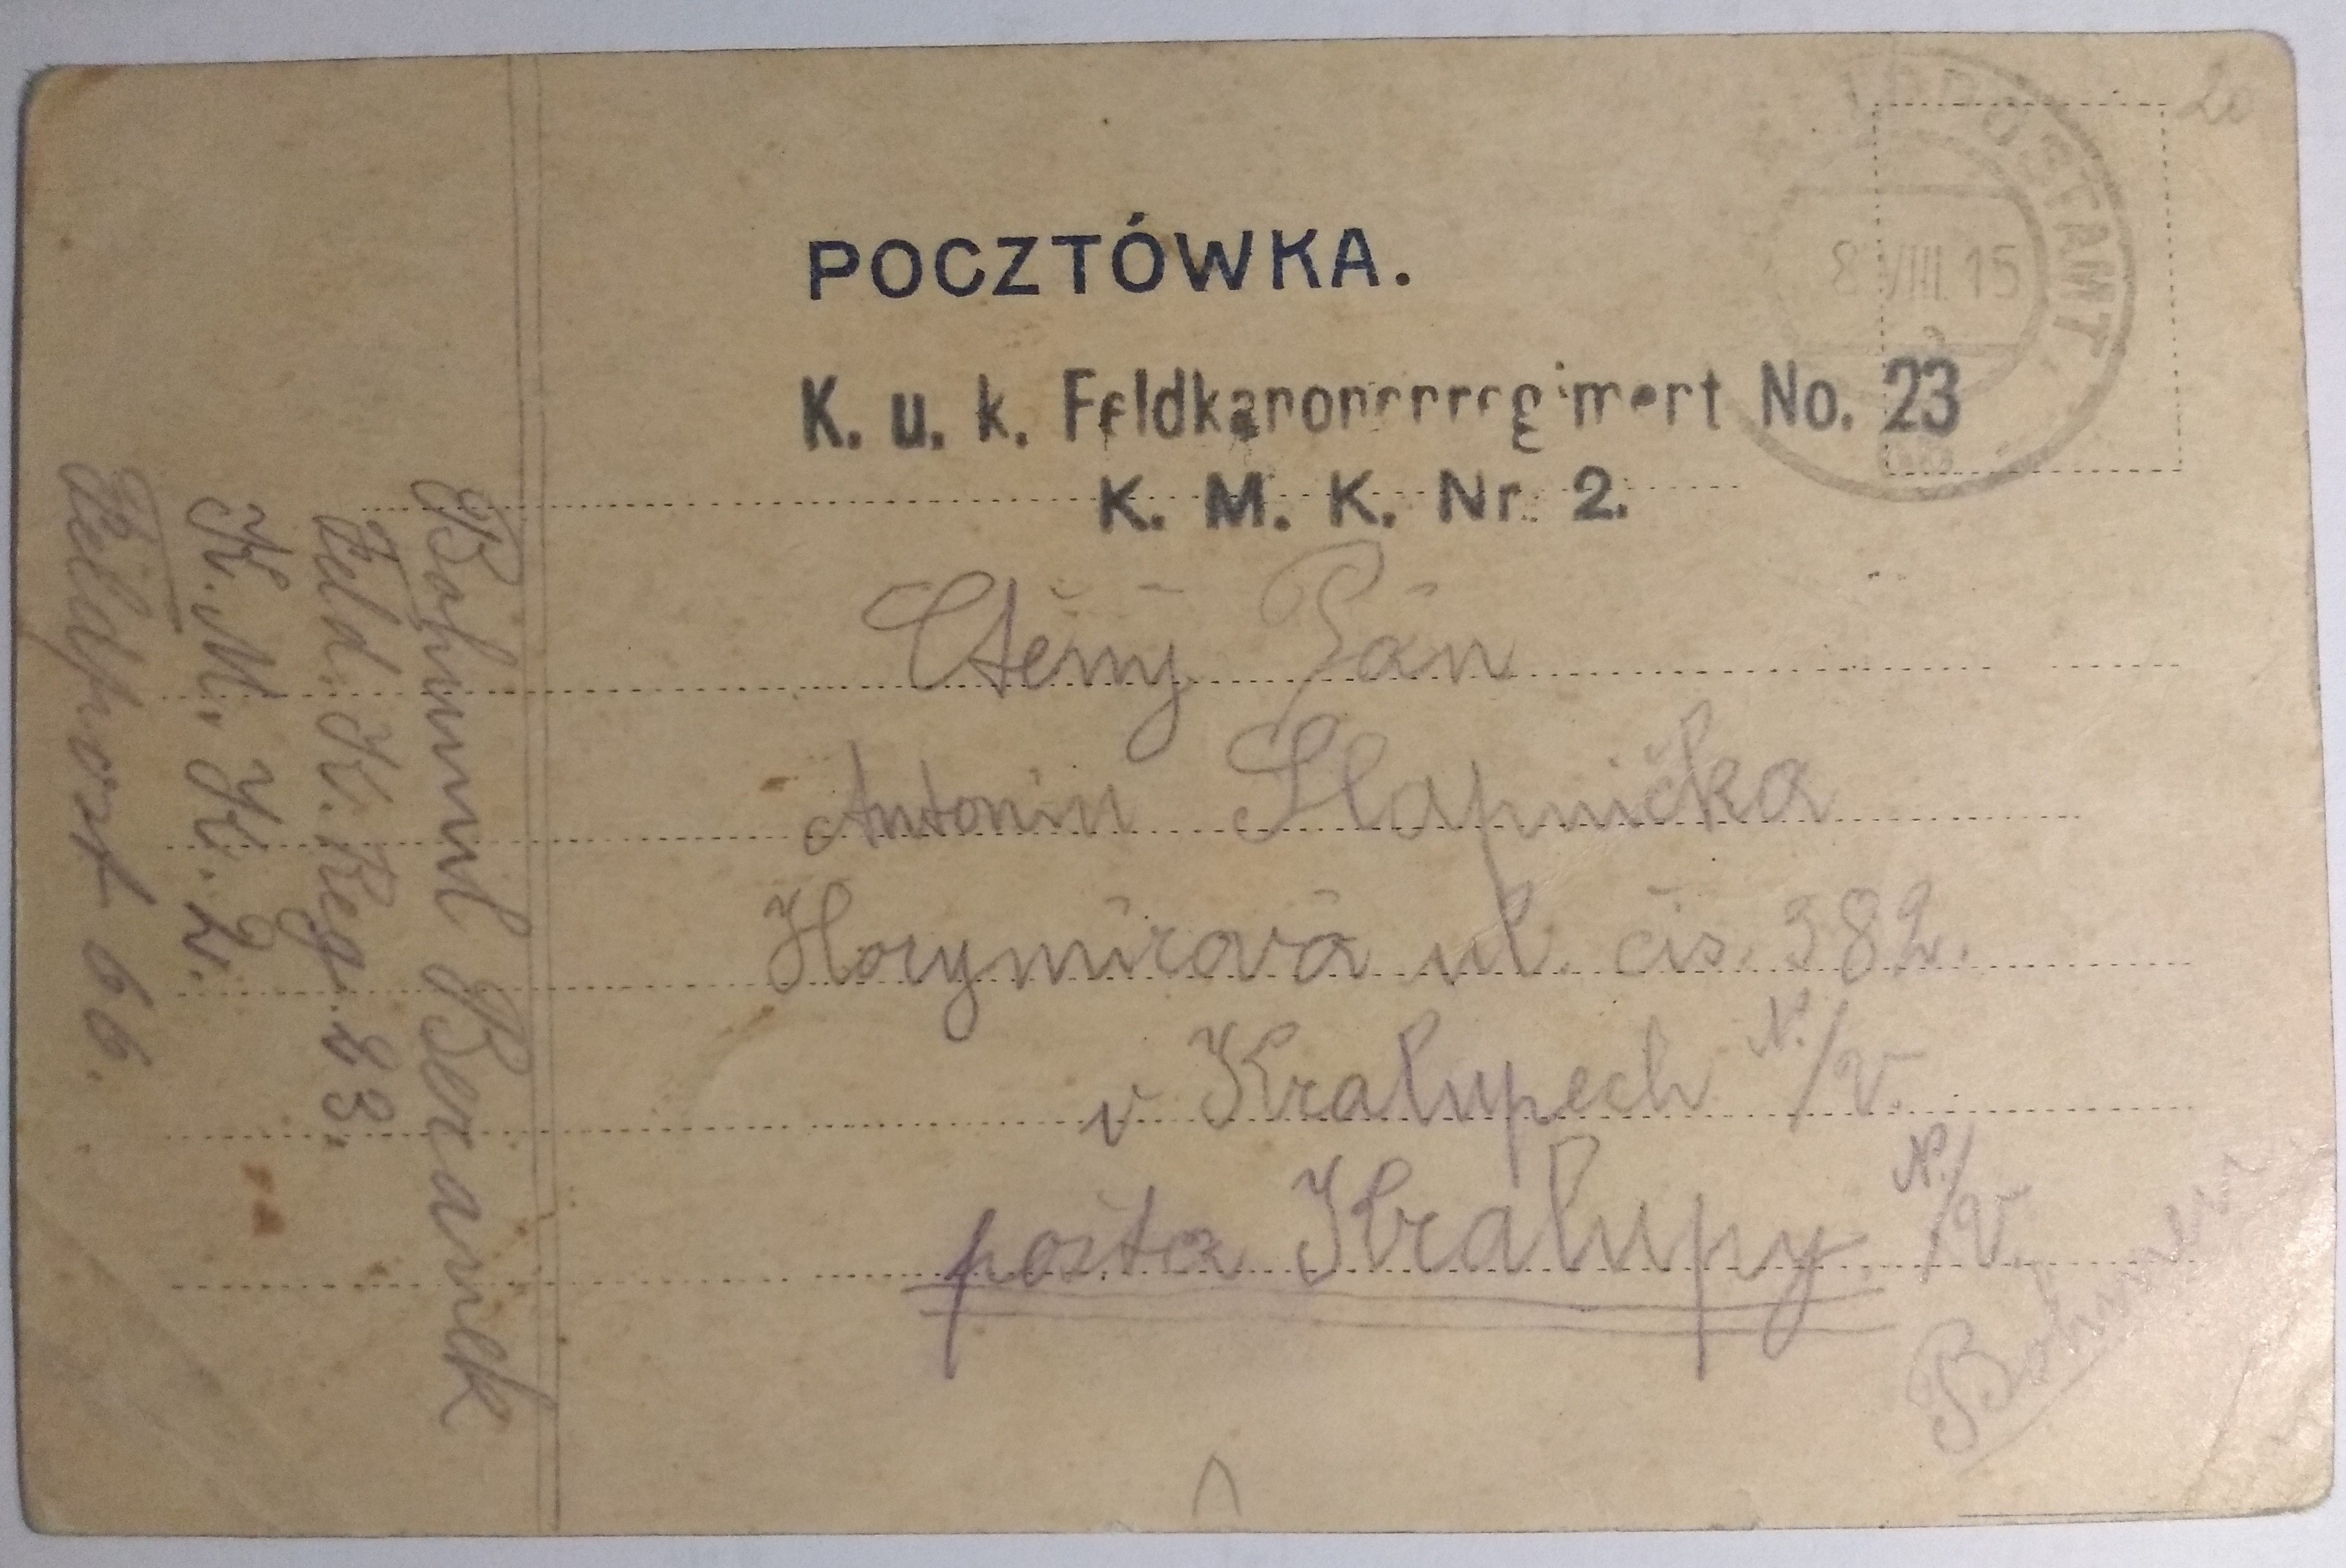 POCZTÓWKA.
8 VIII. 15
K. u. k. Feldkanonenregiment No. 23
K. M. K. Nr. 2.
Ctěný Pán
Antonín Slapnička
Horymírová ul. čís. 382.
v Kralupech N./V.
pošta Kralupy N./V.
Böhmen
Bohumil Beranek
Feld. K. Reg. 23.
K. M. K. 2.
Feldpost 66.
20